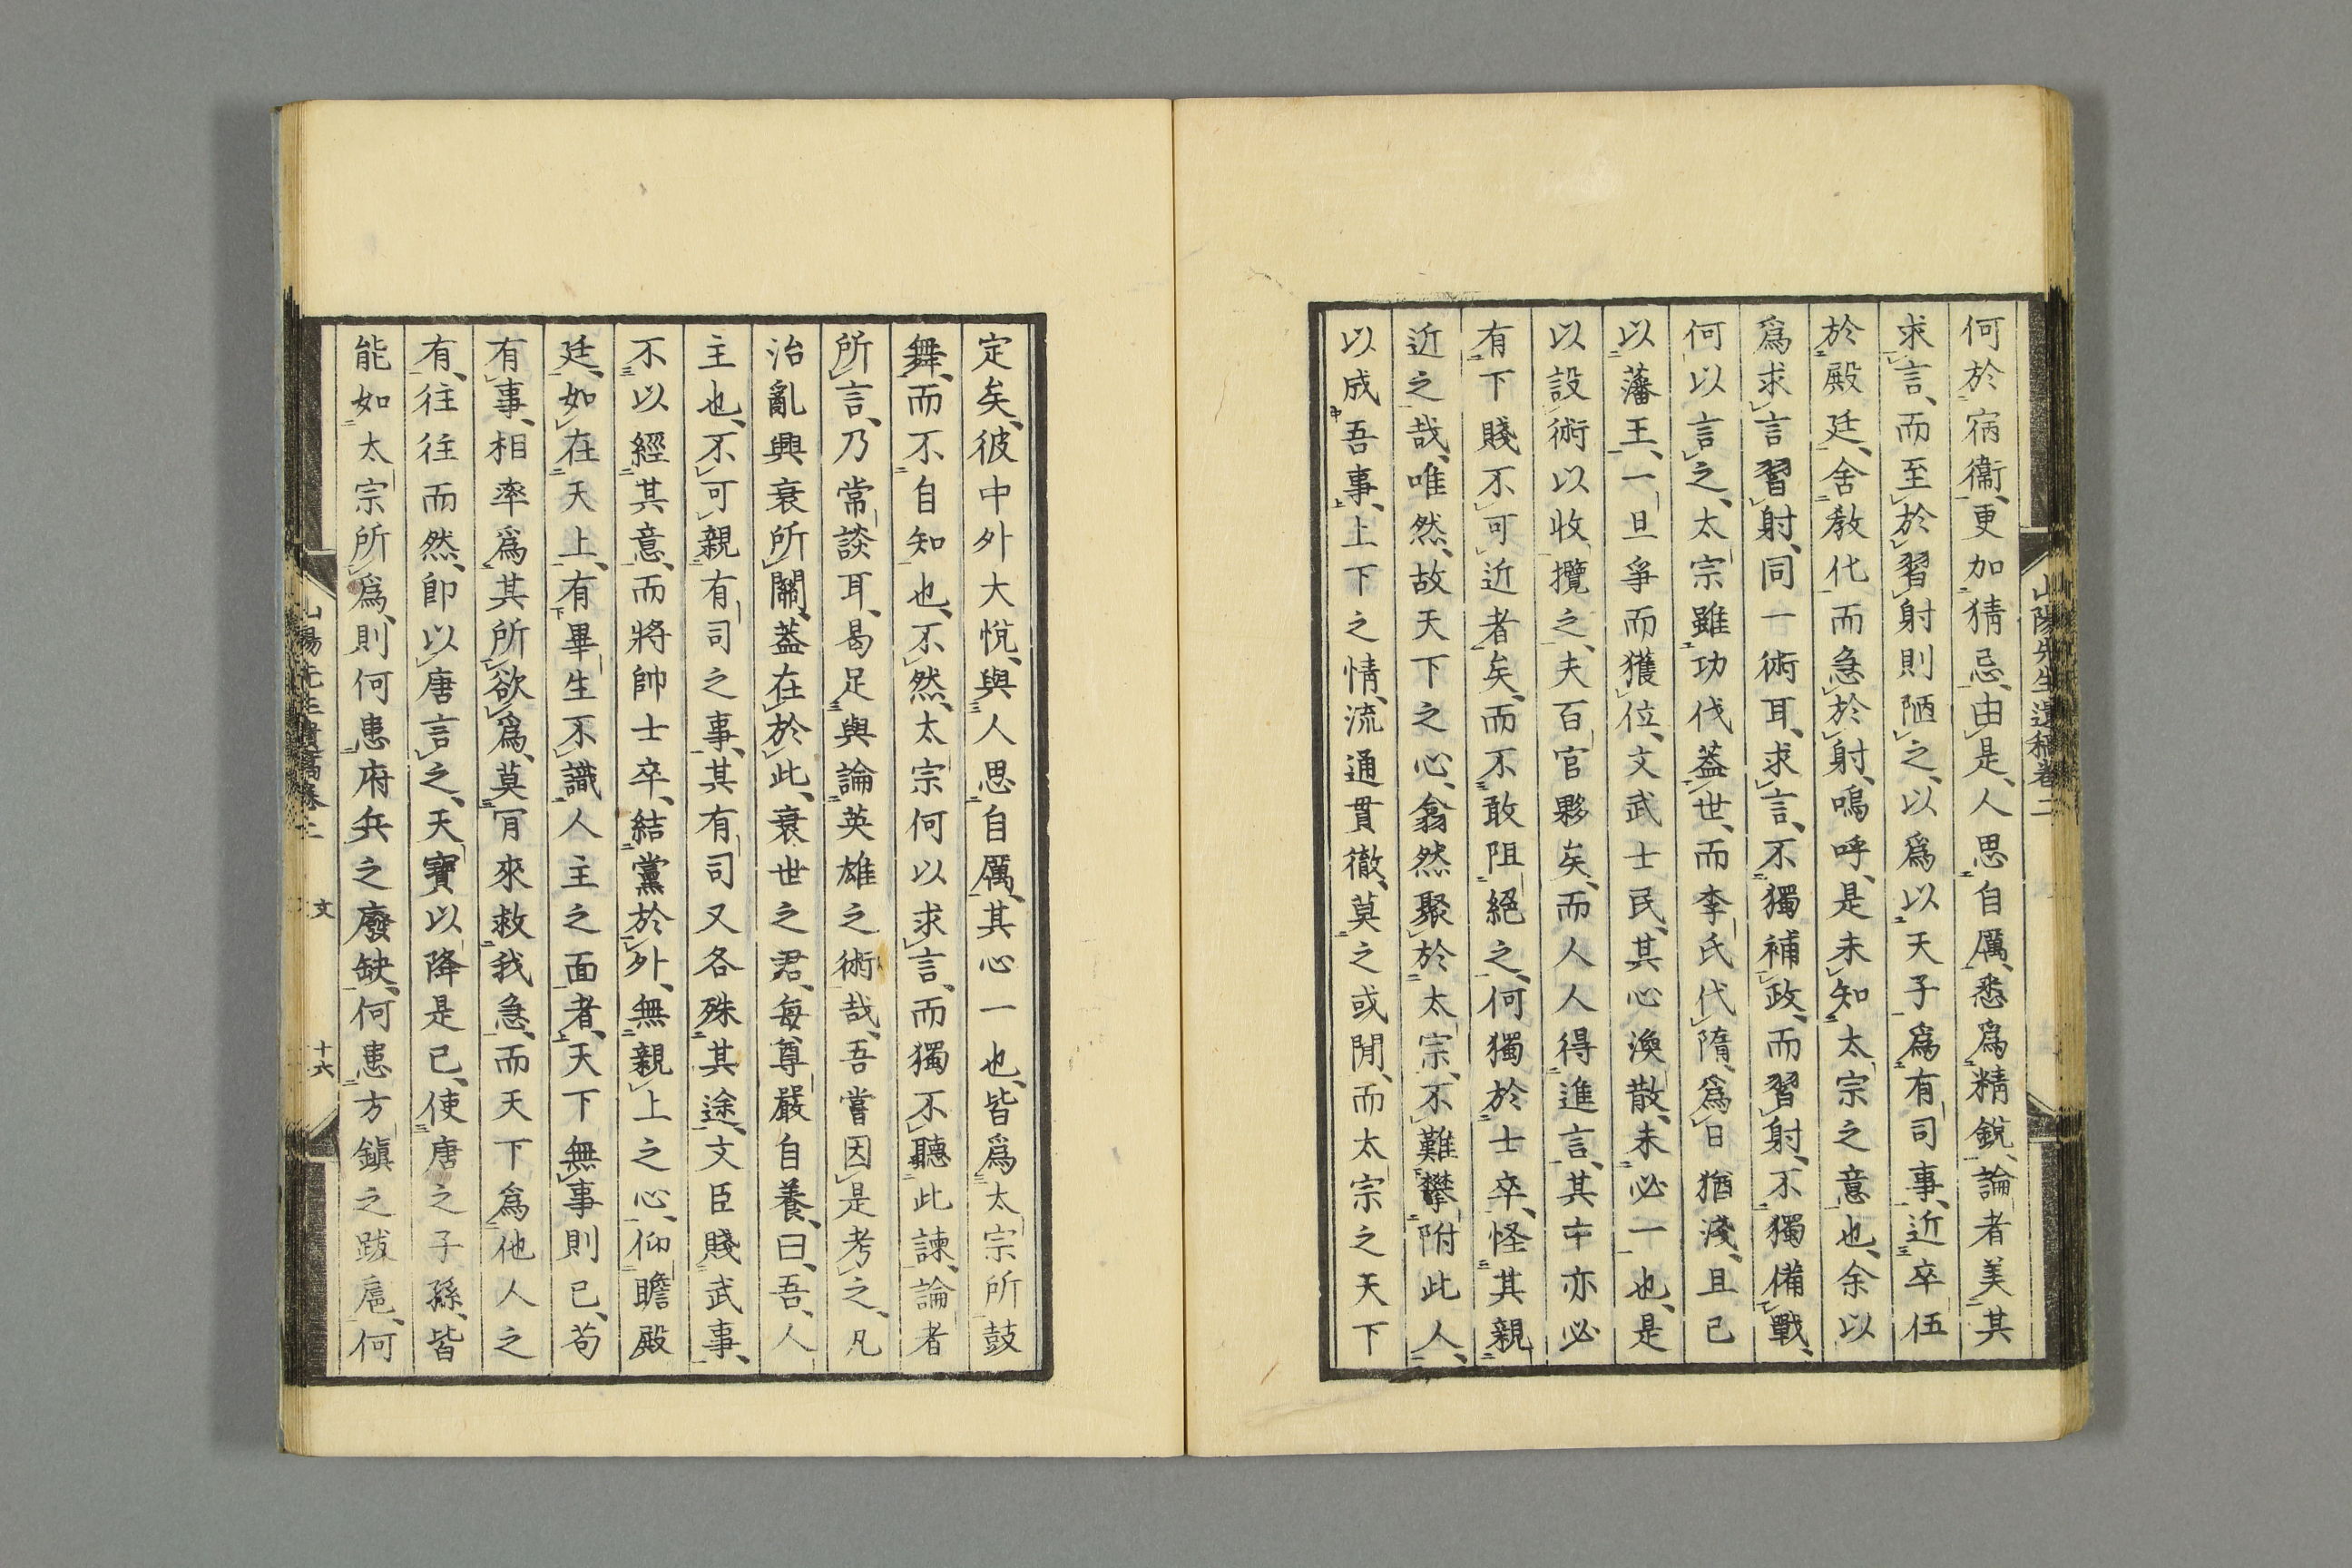 山陽先生遺稿卷二
何於宿衞、更加猜忌、由是、人思自厲、悉爲精銳、論者美其
求言、而至於習射則陋之、以爲以天子爲有司事、近卒伍
於殿廷、舍教化而急於射、嗚呼、是未知太宗之意也、余以
爲求言習射、同一術耳、求言、不獨補政、而習射、不獨備戰、
何以言之、太宗雖功伐蓋世、而李氏代隋、爲日猶淺、且已
以藩王、一旦爭而獲位、文武士民、其心渙散、未必一也、是
以設術以收攬之、夫百官夥矣、而人人得進言、其中亦必
有下賤不可近者矣、而不敢阻絕之、何獨於士卒、怪其親
近之哉、唯然、故天下之心、翕然聚於太宗、不難攀附此人、
以成吾事、上下之情、流通貫徹、莫之或閒、而太宗之天下
定矣、彼中外大悅、與人思自厲、其心一也、皆爲太宗所鼓
舞、而不自知也、不然、太宗何以求言、而獨不聽此諫、論者
所言、乃常談耳、曷足與論英雄之術哉、吾嘗因是考之、凡
治亂興衰所關、蓋在於此、衰世之君、每尊嚴自養、曰、吾、人
主也、不可親有司之事、其有司又各殊其途、文臣賤武事、
不以經其意、而將帥士卒、結黨於外、無親上之心、仰瞻殿
廷、如在天上、有畢生不識人主之面者、天下無事則已、苟
有事、相率爲其所欲爲、莫肎來救我急、而天下爲他人之
有、往往而然、卽以唐言之、天寶以降是已、使唐之子孫、皆
能如太宗所爲、則何患府兵之廢缺、何患方鎭之跋扈、何
文
十六